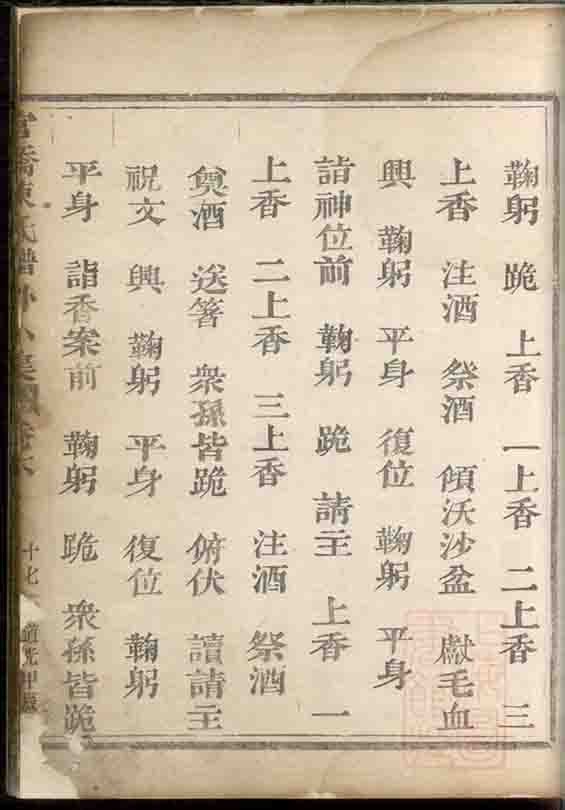 鞠躬 跪 上香 一上香 二上香 三
上香 注酒 祭酒 傾沃沙盆 獻毛血
興 鞠躬 平身 復位 鞠躬 平身
詣神位前 鞠躬 跪 請主 上香 一
上香 二上香 三上香 注酒 祭酒
奠酒 送箸 衆孫皆跪 俯伏 讀請主
祝文 興 鞠躬 平身 復位 鞠躬
平身 詣香案前 鞠躬 跪 衆孫皆跪
橋陳氏譜 卷 十七 道光甲